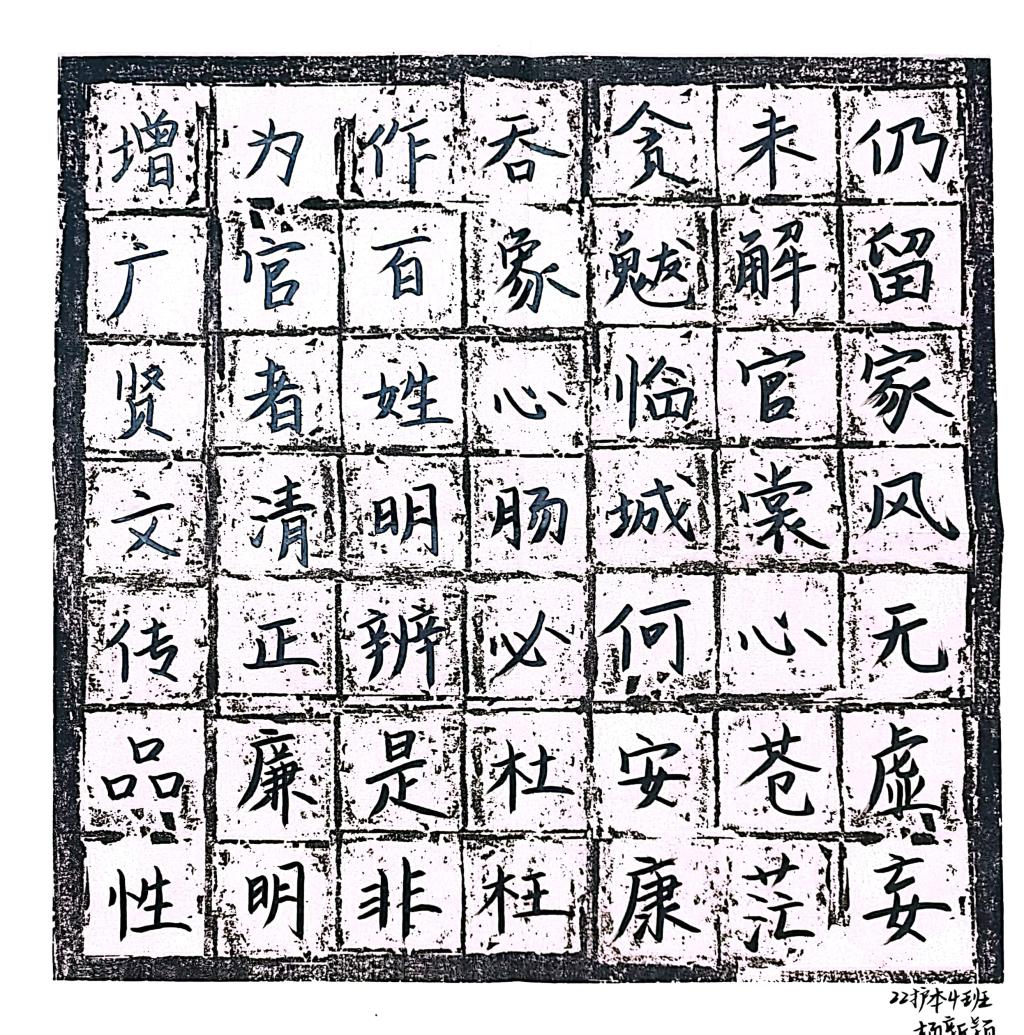 增广贤文传品性
为官者清正廉明
作百姓明辨是非
吞象心肠必杜枉
贪魃临城何安康
未解官裳心苍茫
仍留家风无虚妄
22护本4班